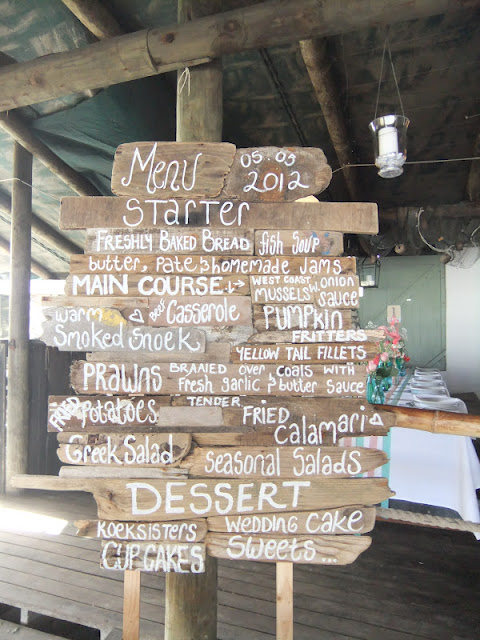 Menu
05.05
2012
STARTER
FRESHLY BAKED BREAD
fish Soup
butter, Pate & homemade Jams
MAIN COURSE
WEST COAST
MUSSELS w. onion
sauce
Warm
Beef Casserole
Smoked Snoek
PUMPKIN
FRITTERS
YELLOW TAIL FILLETS
PRAWNS BRAAIED over coals WITH
Fresh garlic & butter Sauce
FRIED
Potatoes
TENDER
FRIED
Calamari
Greek Salad
Seasonal Salads
DESSERT
KOEKSISTERS
WEDDING CAKE
CUPCAKES
Sweets...